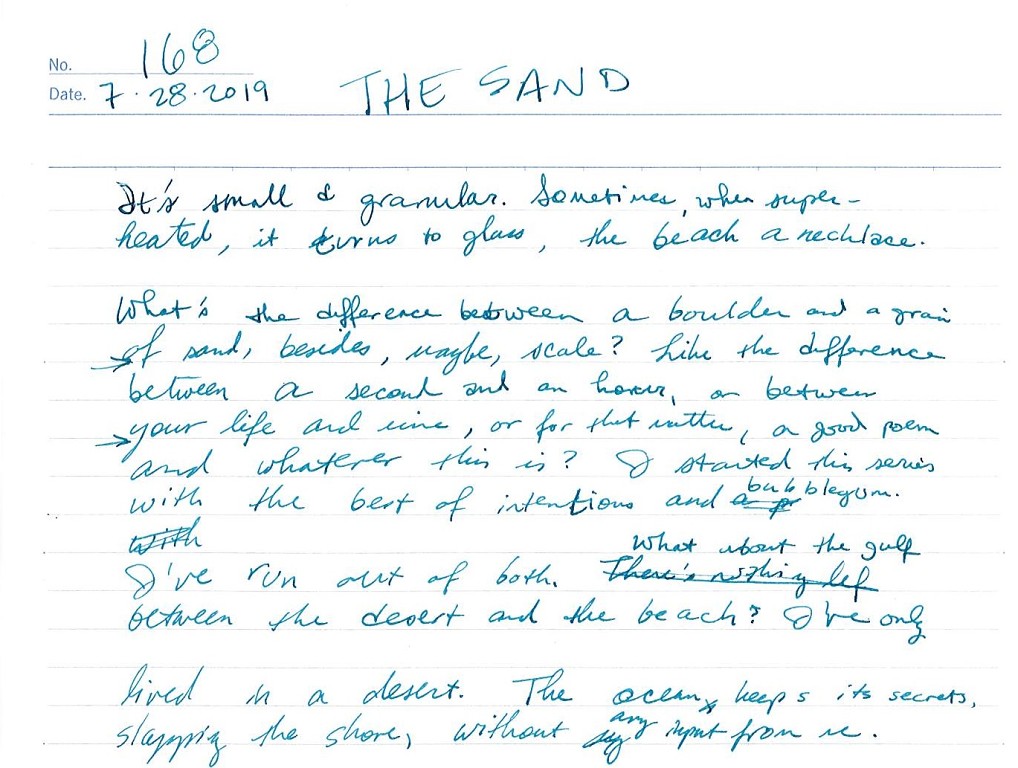 No. 168
Date. 7.28.2019 THE SAND
It's small & granular. Sometimes, when super-
heated, it turns to glass, the beach a necklace.
What's the difference between a boulder and a grain
of sand, besides, maybe, scale? Like the difference
between a second and an hour, or between
your life and mine, or for that matter, a good poem
and whatever this is? I started this series
with the best of intentions and bubblegum.
with
What about the gulf
I've run out of both. There's nothing lef
between the desert and the beach? I've only
lived in a desert. The ocean keeps its secrets,
any
slapping the shore, without input from me.